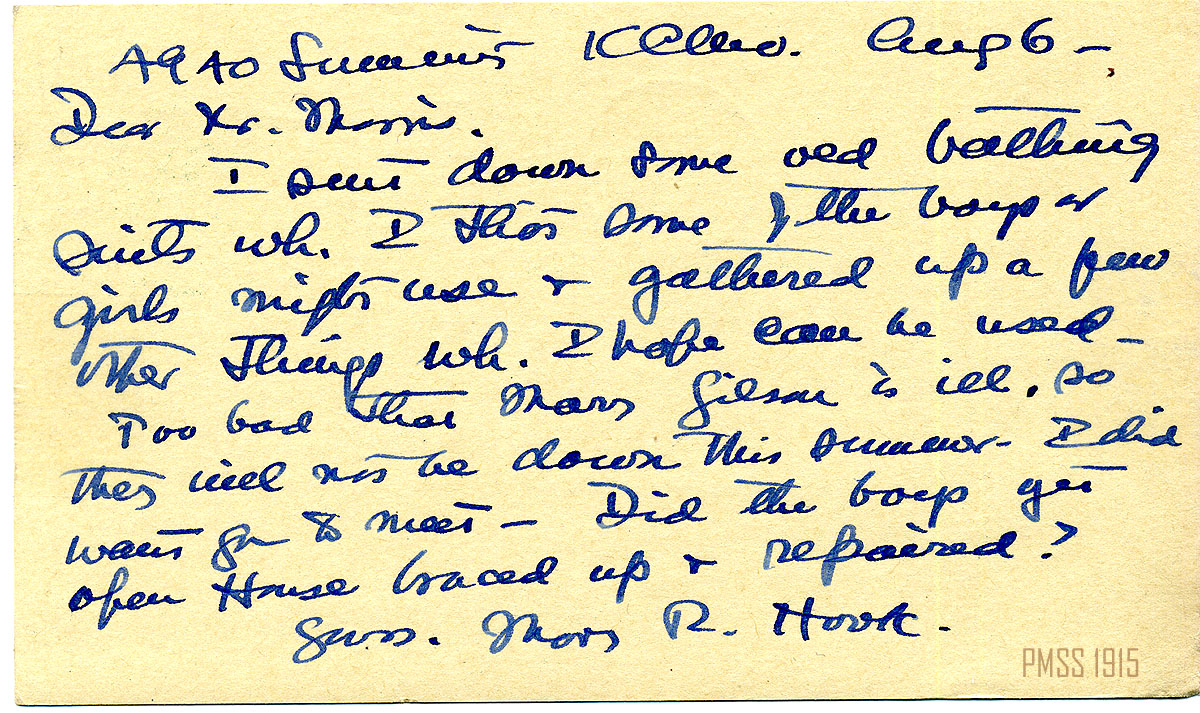 4940 Summit KC Mo. Aug 6 -
Dear Mr. Morris.
I sent down some old bathing
suits wh. I thot some of the boys or
girls might use + gathered up a few
other things wh. I hope can be used -
Too bad that Mary Gilson is ill. so
they will not be down this summer - I did
want you to meet - Did the boys get
open House braced up + repaired?
Yours. Mary R. Hook.
PMSS 1915